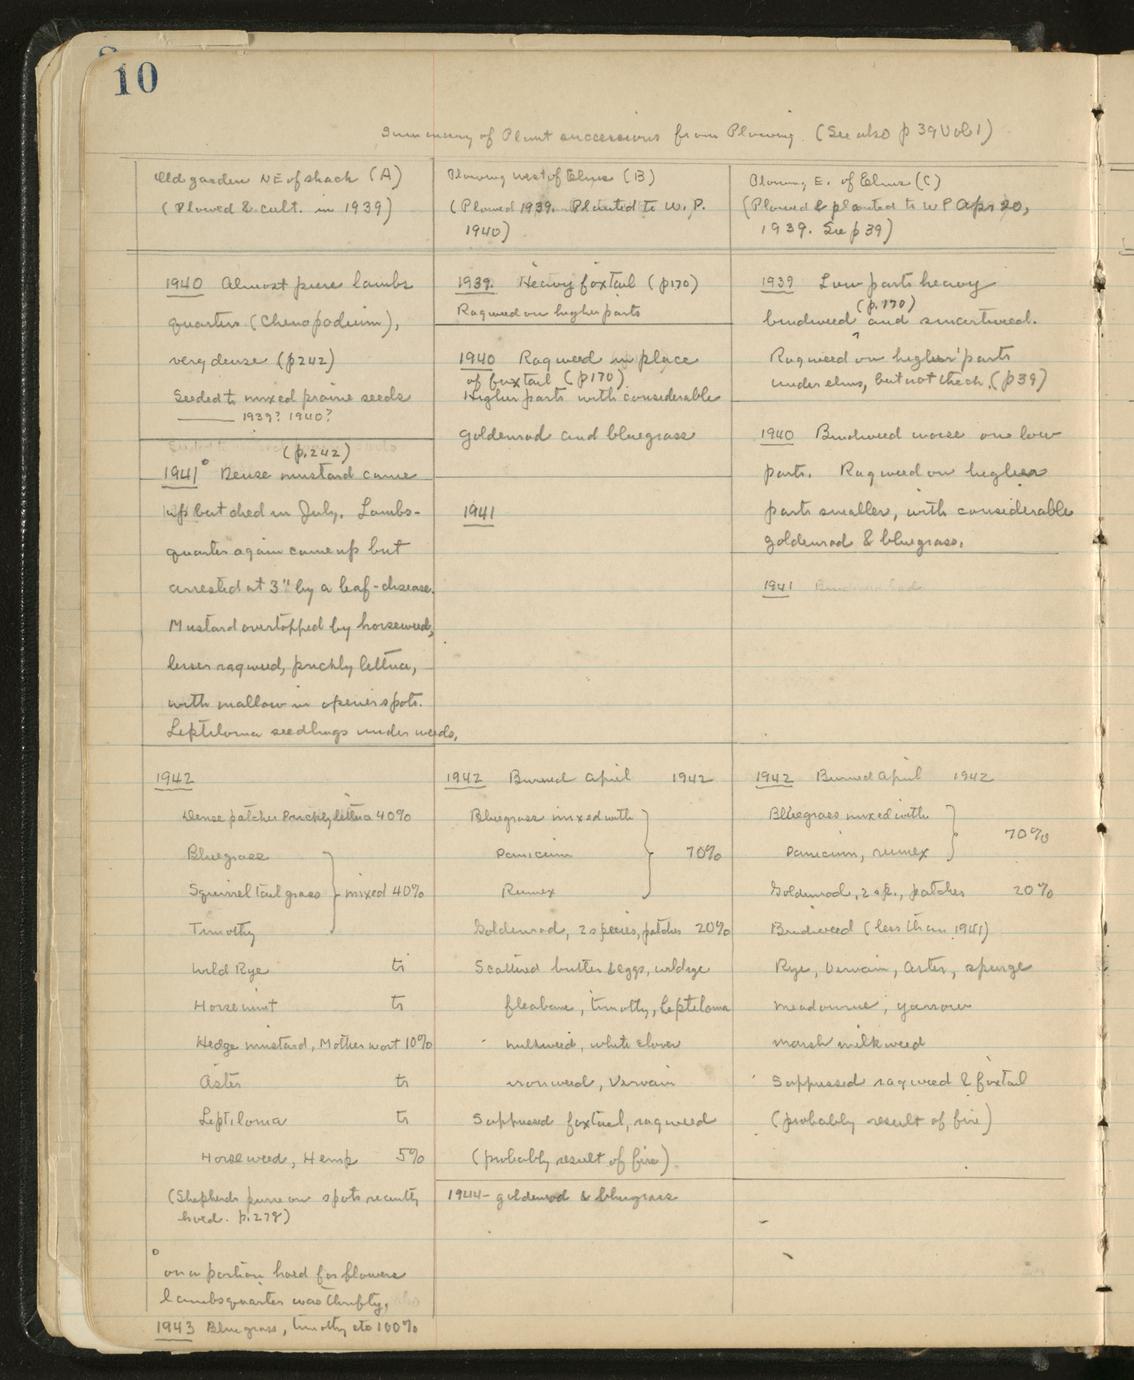 10
Summary of Plant successions from Plowing. (See also p 39 Vol 1)
Old garden NE of shack (A)
(Plowed & cult. in 1939)
1940 Almost pure lambs
quarters (Chenopodium),
very dense (p242)
Seeded to mixed prairie seeds
1939? 1940?
(p.242)
1941° Dense mustard came
up but died in July. Lambs-
quarter again came up but
arrested at 3" by a leaf-disease.
Mustard overtopped by horseweed,
lesser ragweed, prickly lettuce,
with mallow in opener spots.
Leptiloma seedlings under weeds.
1942
Dense patches Prickly lettuce 40%
Bluegrass
Squirrel tail grass } mixed 40%
Timothy
Wild Rye tr
Horsemint tr
Hedge mustard, Motherwort 10%
Aster tr
Leptiloma tr
Horseweed, Hemp 5%
(Shepherds purse on spots recently
hoed. p.278)
° on a portion hoed for flowers
lambsquarter was thrifty,
1943 Bluegrass, timothy etc 100%
Plowing west of Elms (B)
(Plowed 1939. Planted to W. P.
1940)
1939. Heavy foxtail (p170)
Ragweed on higher parts
1940 Ragweed in place
of foxtail (p170)
Higher parts with considerable
goldenrod and bluegrass
1941
1942 Burned April 1942
Bluegrass mixed with
Panicum } 70%
Rumex
Goldenrod, 2 species, patches 20%
Scattered butter & eggs, wildrye
fleabane, timothy, Leptiloma
milkweed, white clover
ironweed, Vervain
Suppressed foxtail, ragweed
(probably result of fire)
1944 - goldenrod & bluegrass
Plowing E. of Elms (C)
(Plowed & planted to W P Apr 20,
1939. See p 39)
1939 Low parts heavy
(p.170)
bindweed ^ and smartweed.
Ragweed on higher parts
under elms, but not thick. (p39)
1940 Bindweed worse on low
parts. Ragweed on higher
parts smaller, with considerable
goldenrod & bluegrass.
1941
1942 Burned April 1942
Bluegrass mixed with
Panicum, rumex } 70%
Goldenrod, 2 sp., patches 20%
Bindweed (less than 1941)
Rye, Vervain, Aster, spurge
meadowrue, yarrow
marsh milkweed
Suppressed ragweed & foxtail
(probably result of fire)